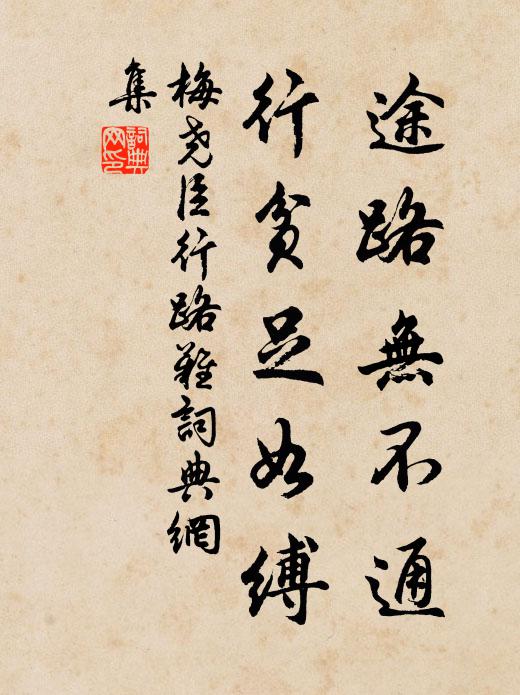 途路無不通
行貧足如縛
梅尧臣行路難詞典網
集
詞典網印